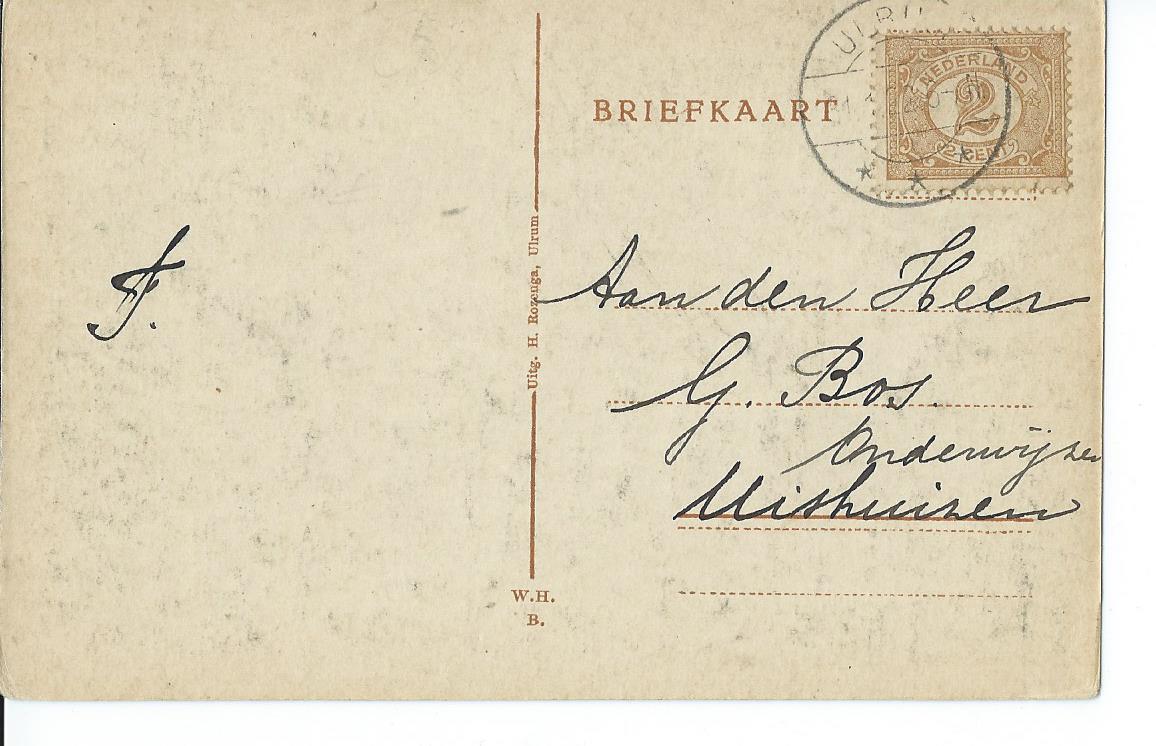 BRIEFKAART
NEDERLAND
2
CENT
Uitg. H. Rozenga, Ulrum
F.
Aan den Heer
G. Bos.
Onderwijzer
Uithuizen
W.H.
B.